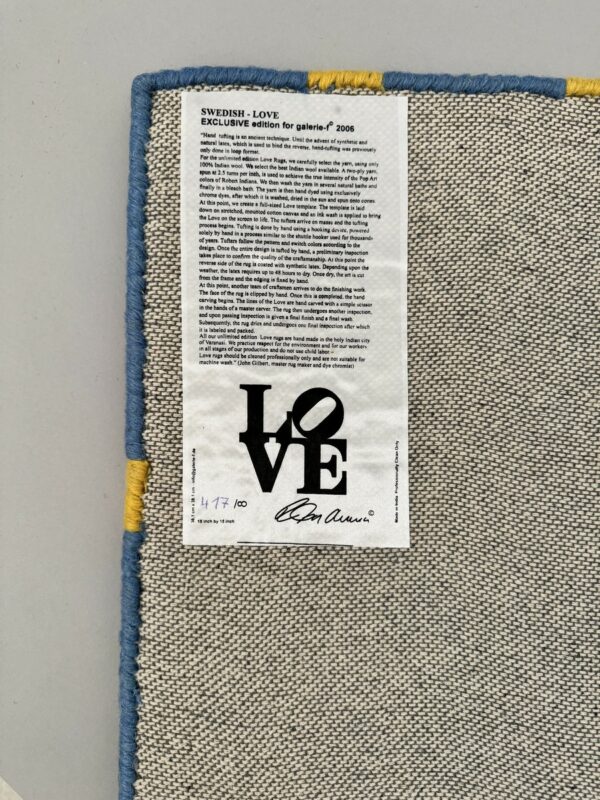 SWEDISH - LOVE
EXCLUSIVE edition for galerie-f© 2006
"Hand tufting is an ancient technique. Until the advent of synthetic and
natural latex, which is used to bind the reverse, hand-tufting was previously
only done in loop format.
For the unlimited edition Love Rugs, we carefully select the yarn, using only
100% Indian wool. We select the best Indian wool available. A two-ply yarn,
spun at 2.5 turns per inch, is used to achieve the true intensity of the Pop Art
colors of Robert Indiana. We then wash the yarn in several natural baths and
finally in a bleach bath. The yarn is then hand dyed using exclusively
chrome dyes, after which it is washed, dried in the sun and spun onto cones.
At this point, we create a full-sized Love template. The template is laid
down on stretched, mounted cotton canvas and an ink wash is applied to bring
the Love on the screen to life. The tufters arrive en masse and the tufting
process begins. Tufting is done by hand using a hooking device, powered
solely by hand in a process similar to the shuttle hooker used for thousands
of years. Tufters follow the pattern and switch colors according to the
design. Once the entire design is tufted by hand, a preliminary inspection
takes place to confirm the quality of the craftsmanship. At this point the
reverse side of the rug is coated with synthetic latex. Depending upon the
weather, the latex requires up to 48 hours to dry. Once dry, the art is cut
from the frame and the edging is fixed by hand.
At this point, another team of craftsmen arrives to do the finishing work.
The face of the rug is clipped by hand. Once this is completed, the hand
carving begins. The lines of the Love are hand carved with a simple scissor
in the hands of a master carver. The rug then undergoes another inspection,
and upon passing inspection is given a final finish and a final wash.
Subsequently, the rug dries and undergoes one final inspection after which
it is labeled and packed.
All our unlimited edition Love rugs are hand made in the holy Indian city
of Varanasi. We practice respect for the environment and for our workers
in all stages of our production and do not use child labor –
Love rugs should be cleaned professionally only and are not suitable for
machine wash." (John Gilbert, master rug maker and dye chromist)
LO
VE
417 /∞
18 inch by 15 inch
©
info@galerie-f.de
Made in India Professionally Clean Only